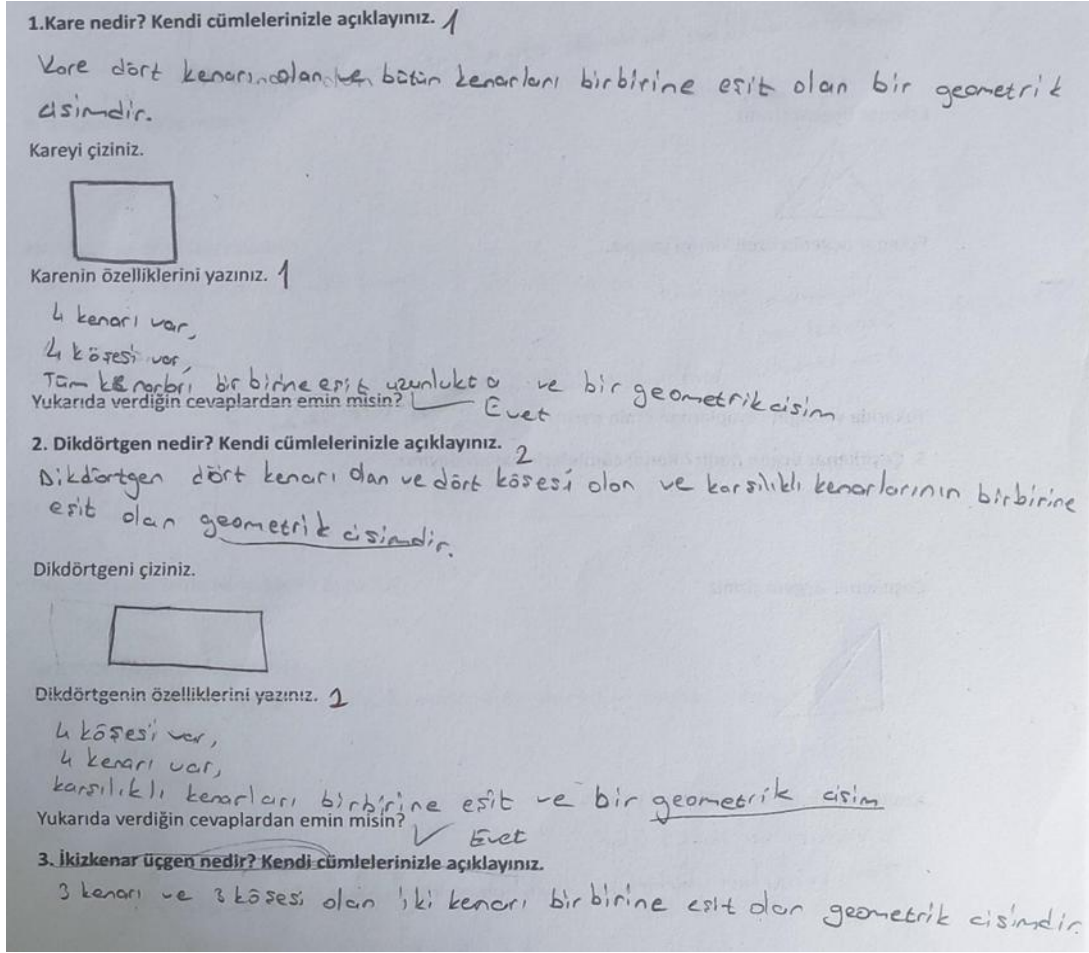 1.Kare nedir? Kendi cümlelerinizle açıklayınız. 1
Kare dört kenarı olan ve bütün kenarları birbirine eşit olan bir geometrik
cisimdir.
Kareyi çiziniz.
Karenin özelliklerini yazınız. 1
4 kenarı var,
4 köşesi var,
Tüm kenarları birbirine eşit uzunlukta ve bir geometrik cisim
Yukarıda verdiğin cevaplardan emin misin? Evet
2. Dikdörtgen nedir? Kendi cümlelerinizle açıklayınız. 2
Dikdörtgen dört kenarı olan ve dört köşesi olan ve karşılıklı kenarlarının birbirine
eşit olan geometrik cisimdir.
Dikdörtgeni çiziniz.
Dikdörtgenin özelliklerini yazınız. 2
4 köşesi var,
4 kenarı var,
karşılıklı kenarları birbirine eşit ve bir geometrik cisim
Yukarıda verdiğin cevaplardan emin misin? Evet
3. İkizkenar üçgen nedir? Kendi cümlelerinizle açıklayınız.
3 kenarı ve 3 köşesi olan iki kenarı birbirine eşit olan geometrik cisimdir.